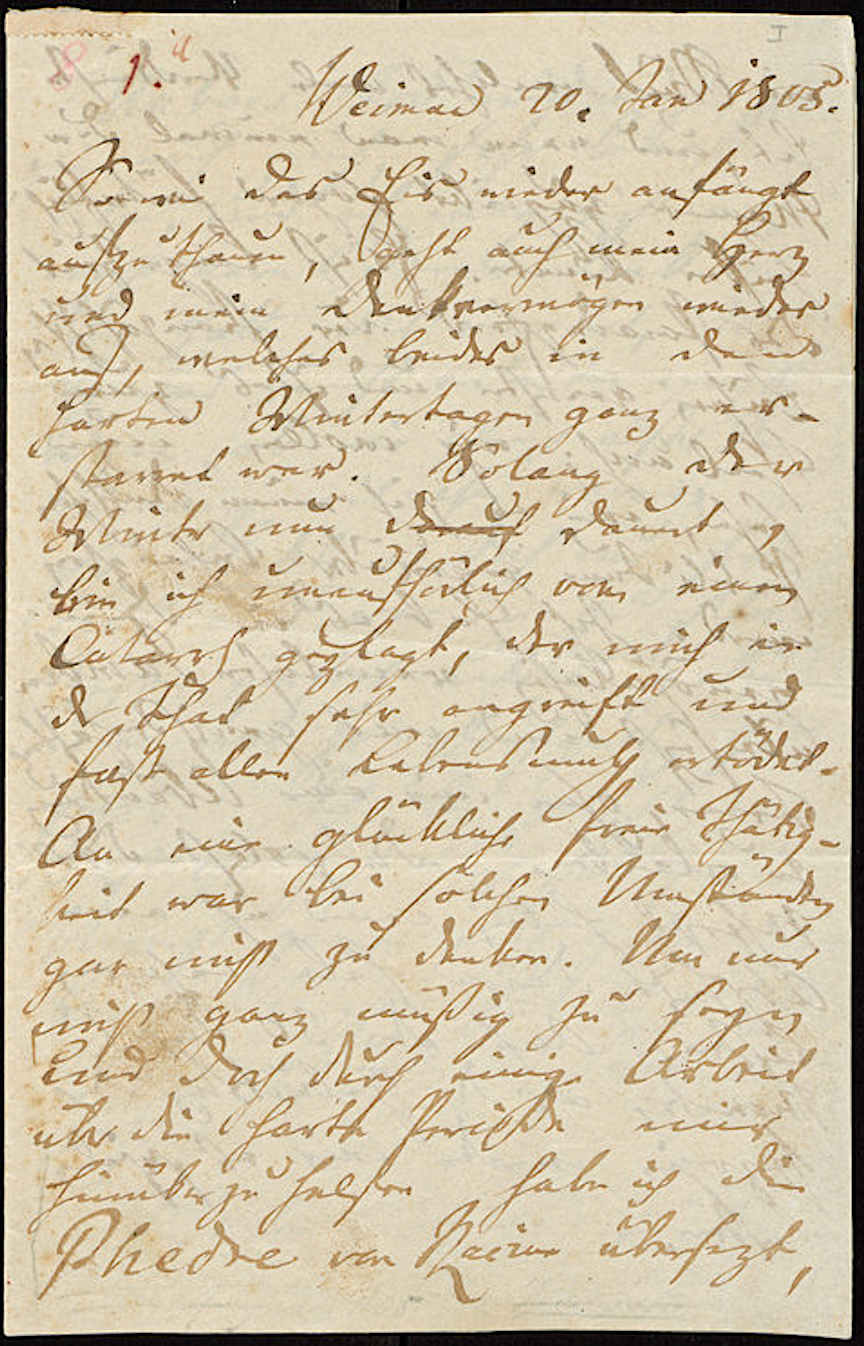 8 1. a
I
Weimar 20. Jan 1805.
So wie das Eis wieder anfängt
aufzuthauen, geht auch mein Herz
und mein Denkvermögen wieder
auf, welches beides in den
harten Wintertagen ganz er-
starret war. Solang der
Winter nun dauert,
bin ich unaufhörlich von einem
Catarrh geplagt, der mich in
der That sehr angreift und
fast allen Lebensmuth ertödtet.
An eine glückliche freie Thätig-
keit war bei solchen Umständen
gar nicht zu denken. Um nur
nicht ganz müßig zu seyn
und doch durch einige Arbeit
über die harte Periode mir
hinüberzuhelfen habe ich die
Phedre von Racine übersezt,